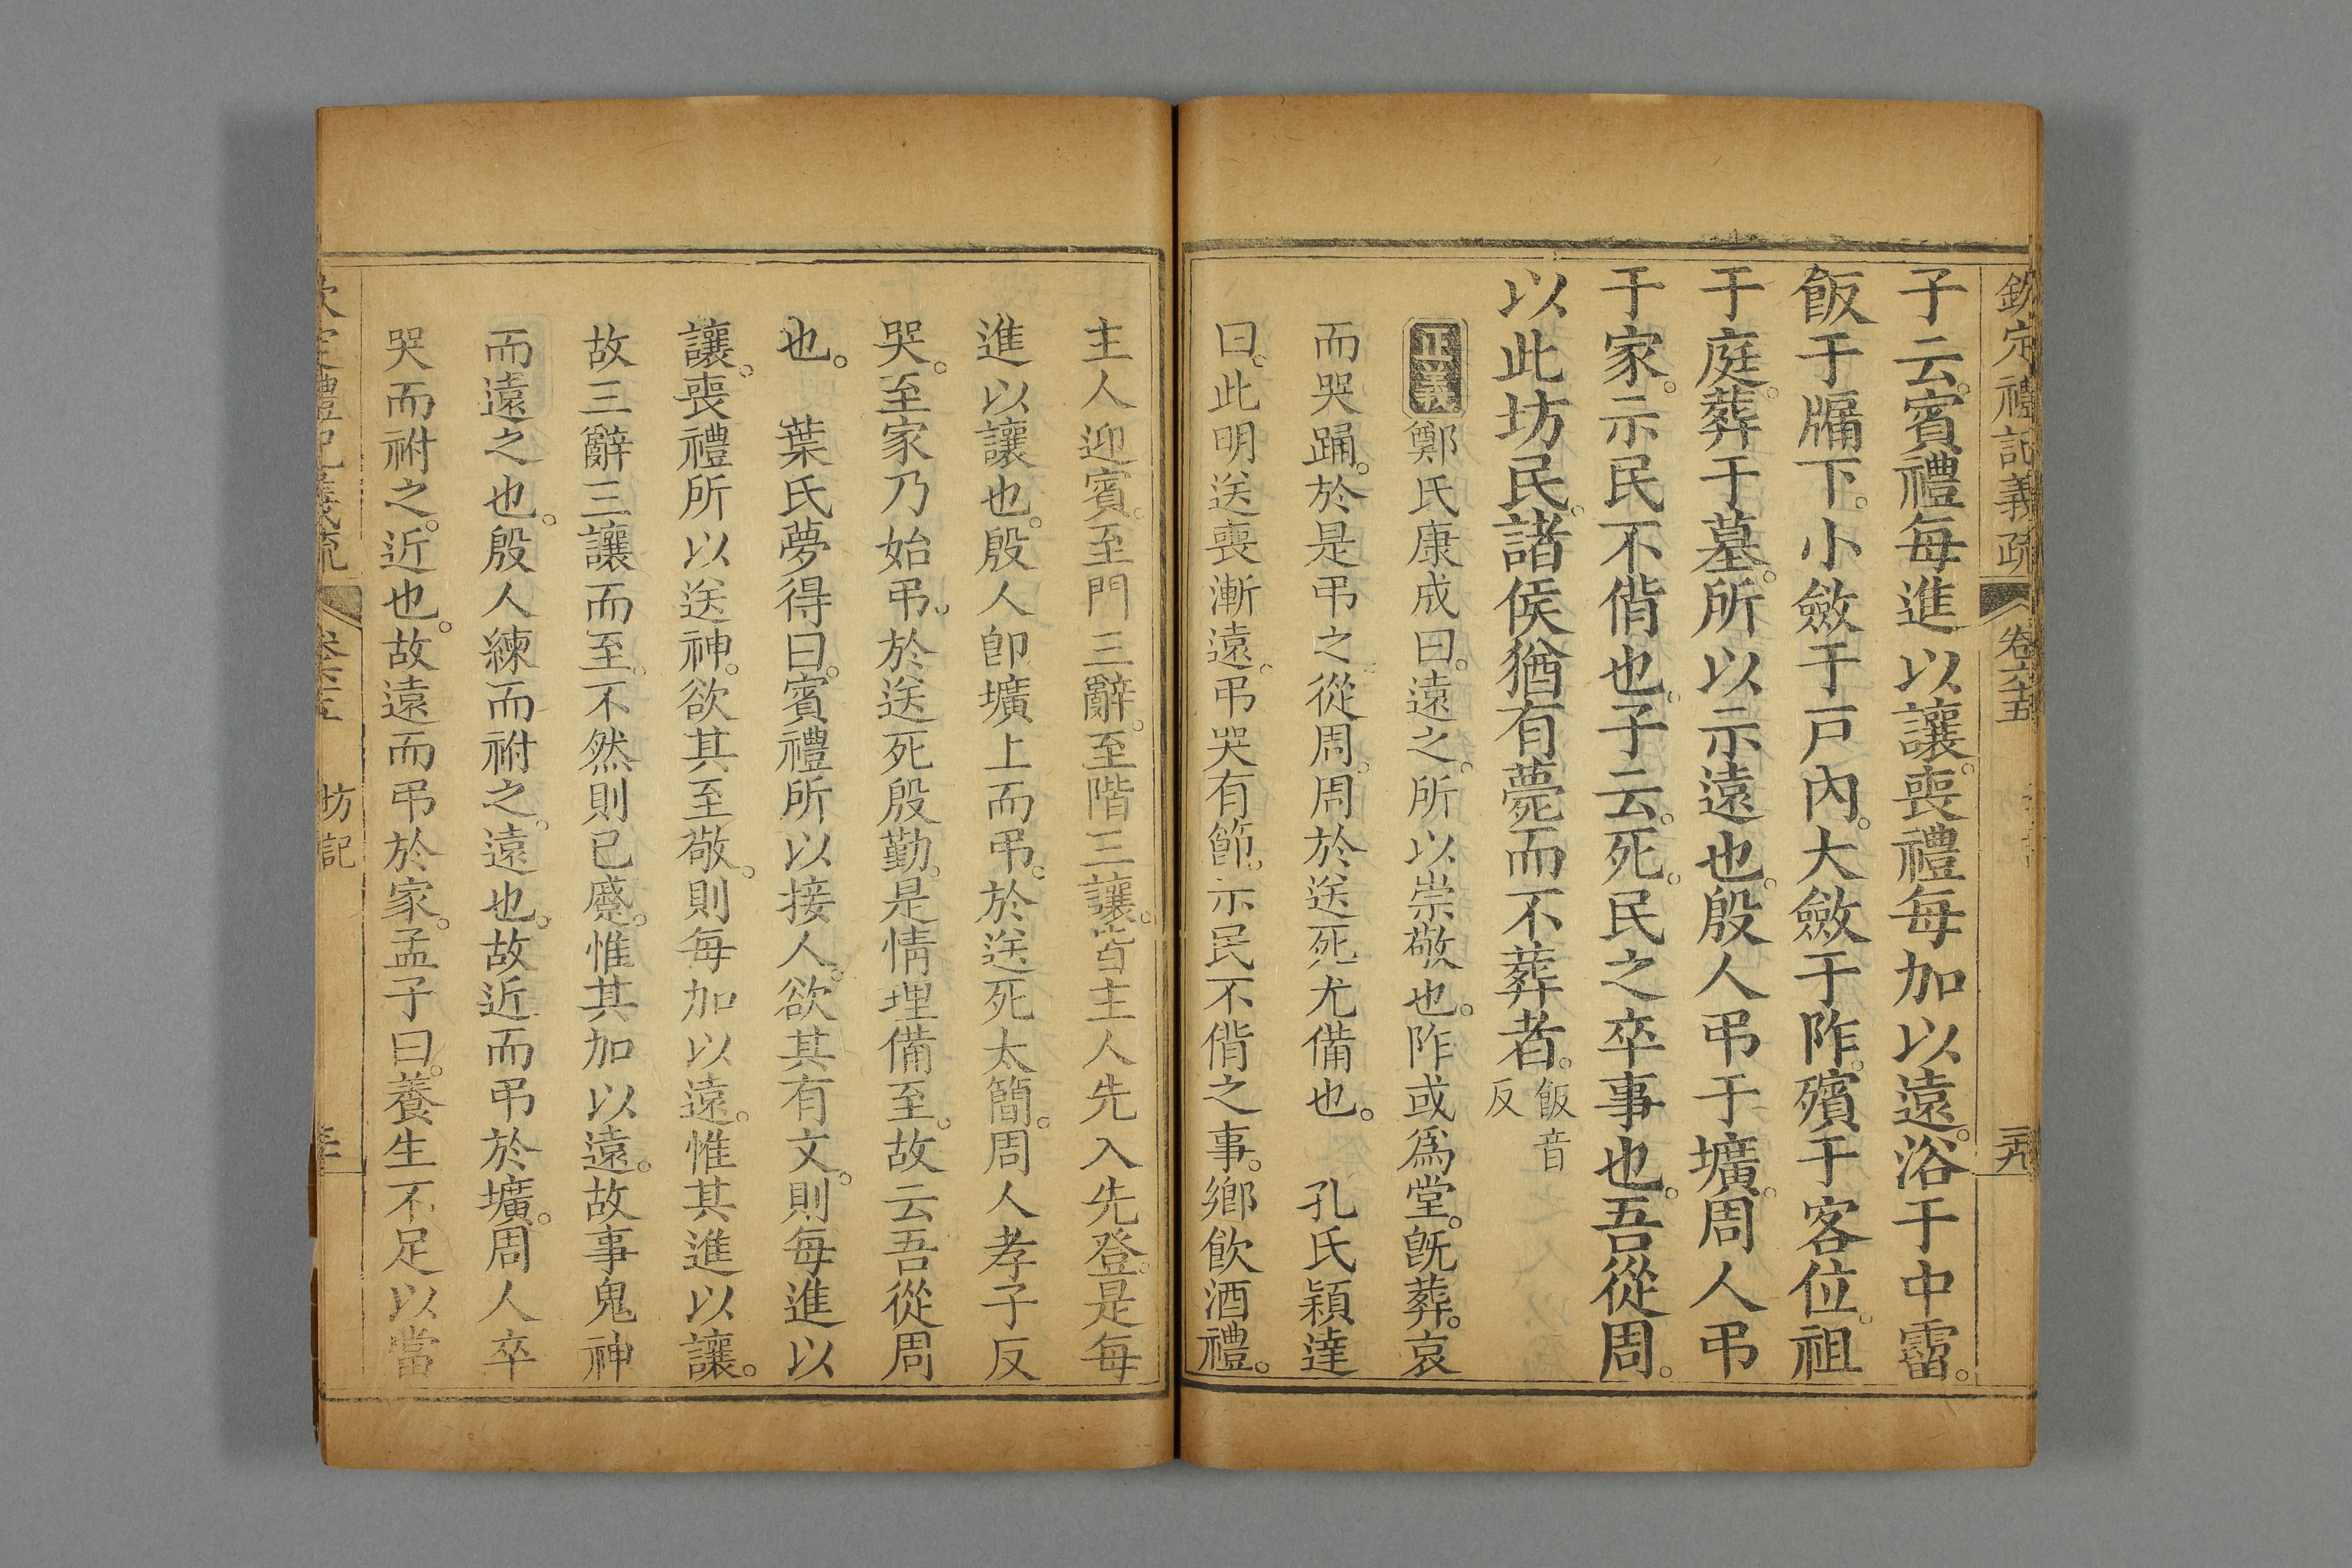 欽定禮記義疏 卷六十五
子云。賓禮每進以讓。喪禮每加以遠。浴于中霤。
飯于牖下。小斂于戶內。大斂于阼。殯于客位。祖
于庭。葬于墓。所以示遠也。殷人弔于壙。周人弔
于家。示民不偝也。子云。死。民之卒事也。吾從周。
以此坊民。諸侯猶有薨而不葬者。飯音
反
正義 鄭氏康成曰。遠之。所以崇敬也。阼或爲堂。旣葬。哀
而哭踊。於是弔之。從周。周於送死尤備也。 孔氏穎達
曰。此明送喪漸遠。弔哭有節。示民不偝之事。鄉飲酒禮。
主人迎賓。至門三辭。至階三讓。皆主人先入先登。是每
進以讓也。殷人卽壙上而弔。於送死太簡。周人孝子反
哭。至家乃始弔。於送死殷勤。是情理備至。故云吾從周
也。 葉氏夢得曰。賓禮所以接人。欲其有文。則每進以
讓。喪禮所以送神。欲其至敬。則每加以遠。惟其進以讓。
故三辭三讓而至。不然則已蹙。惟其加以遠。故事鬼神
而遠之也。殷人練而祔之。遠也。故近而弔於壙。周人卒
哭而祔之。近也。故遠而弔於家。孟子曰。養生不足以當
坊記